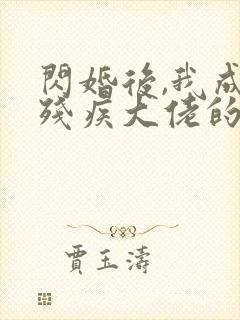 閃婚後,我成
殘疾大佬的
賈玉濤